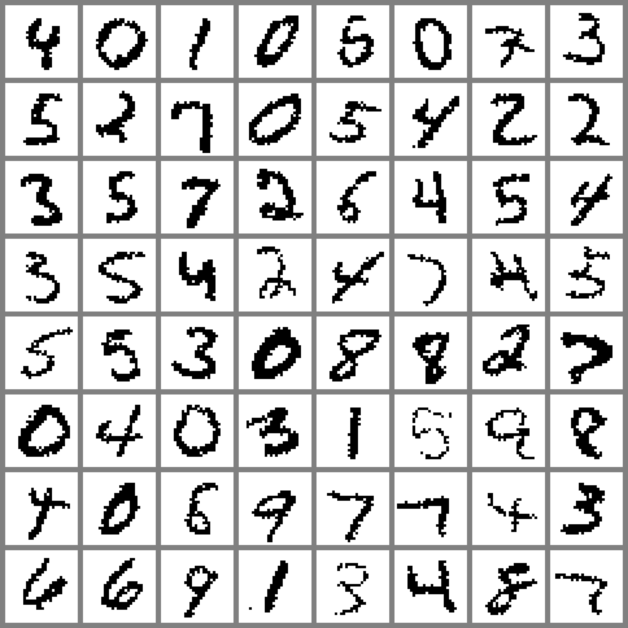 4 0 1 0 5 0 7 3
5 2 7 0 5 4 2 2
3 5 7 2 6 4 5 4
3 5 4 2 4 7 4 5
5 5 3 0 8 8 2 7
0 4 0 3 1 5 9 8
4 0 6 9 7 7 4 3
6 6 9 1 3 4 8 7